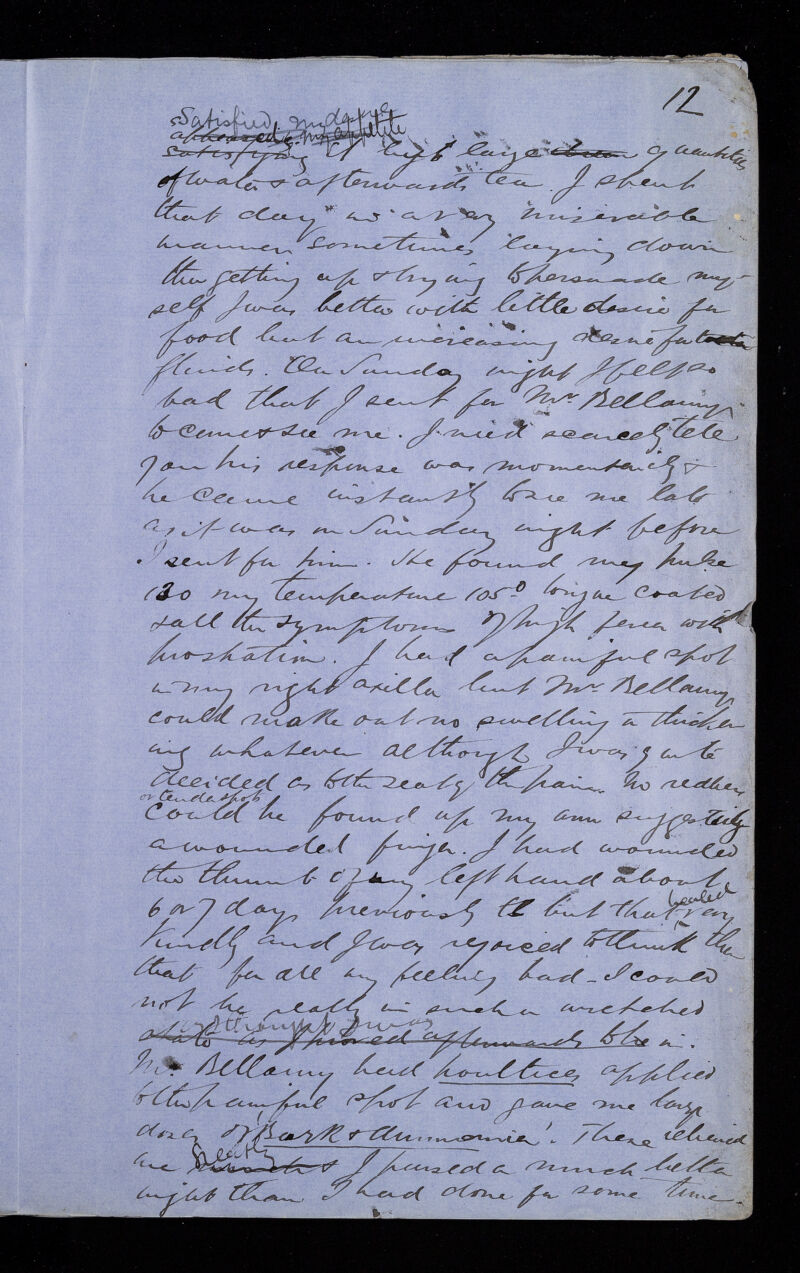 12
Satisfied my
appeased my appetite
satisfying it by large quantities
of water & afterwards tea. I spent
that day in a very miserable
manner sometimes laying down
then getting up & trying to persuade my-
self I was better with little desire for
food but an increasing desire for
fluids. On Sunday night I felt so
bad that I sent for Mr. Bellamy
to come & see me. I need scarcely tell
you his response was momentarily &
he came instantly to see me late
as it was on Sunday night before
I sent for him. He found my pulse
130 my temperature 105° tongue coated
& all the symptoms of high fever with
prostration. I had a painful spot
in my right axilla but Mr. Bellamy
could make out no swelling or thicken
ing whatever although I was quite
decided as to the seat of the pain. No redness
or tender spots
could be found up my arm suggesting
a wounded finger. I had wounded
the thumb of my left hand about
6 or 7 days previously but that healed very
kindly and I was rejoiced to think then
that for all my feeling bad - I could
not be really in such a wretched
as I thought I was
state as I proved afterwards to be in.
Mr. Bellamy had poultices applied
to the painful spot and gave me large
doses of 'Bark & Ammonia'. These relieved
me greatly & I passed a much better
night than I had done for some time.